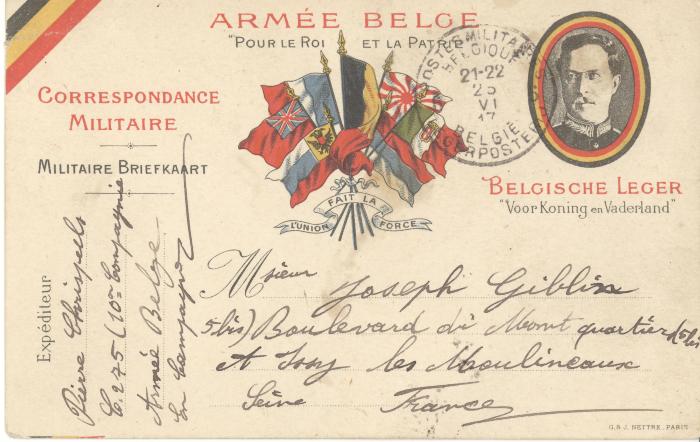 ARMÉE BELGE
"POUR LE ROI ET LA PATRIE"
CORRESPONDANCE
MILITAIRE
MILITAIRE BRIEFKAART
POSTES MILITAIRES
BELGIQUE
21-22
25
VI
17
BELGIË
LEGERPOSTERIJ
BELGISCHE LEGER
"Voor Koning en Vaderland"
L'UNION FAIT LA FORCE
Expéditeur
Pierre
C. 275 (10e Compagnie
Armée Belge
En Campagne
Msieur Joseph Giblin
5bis) Boulevard di Mont quartier (5bis
A Issy les Moulineaux
Seine France
G & J. NETTRE, PARIS